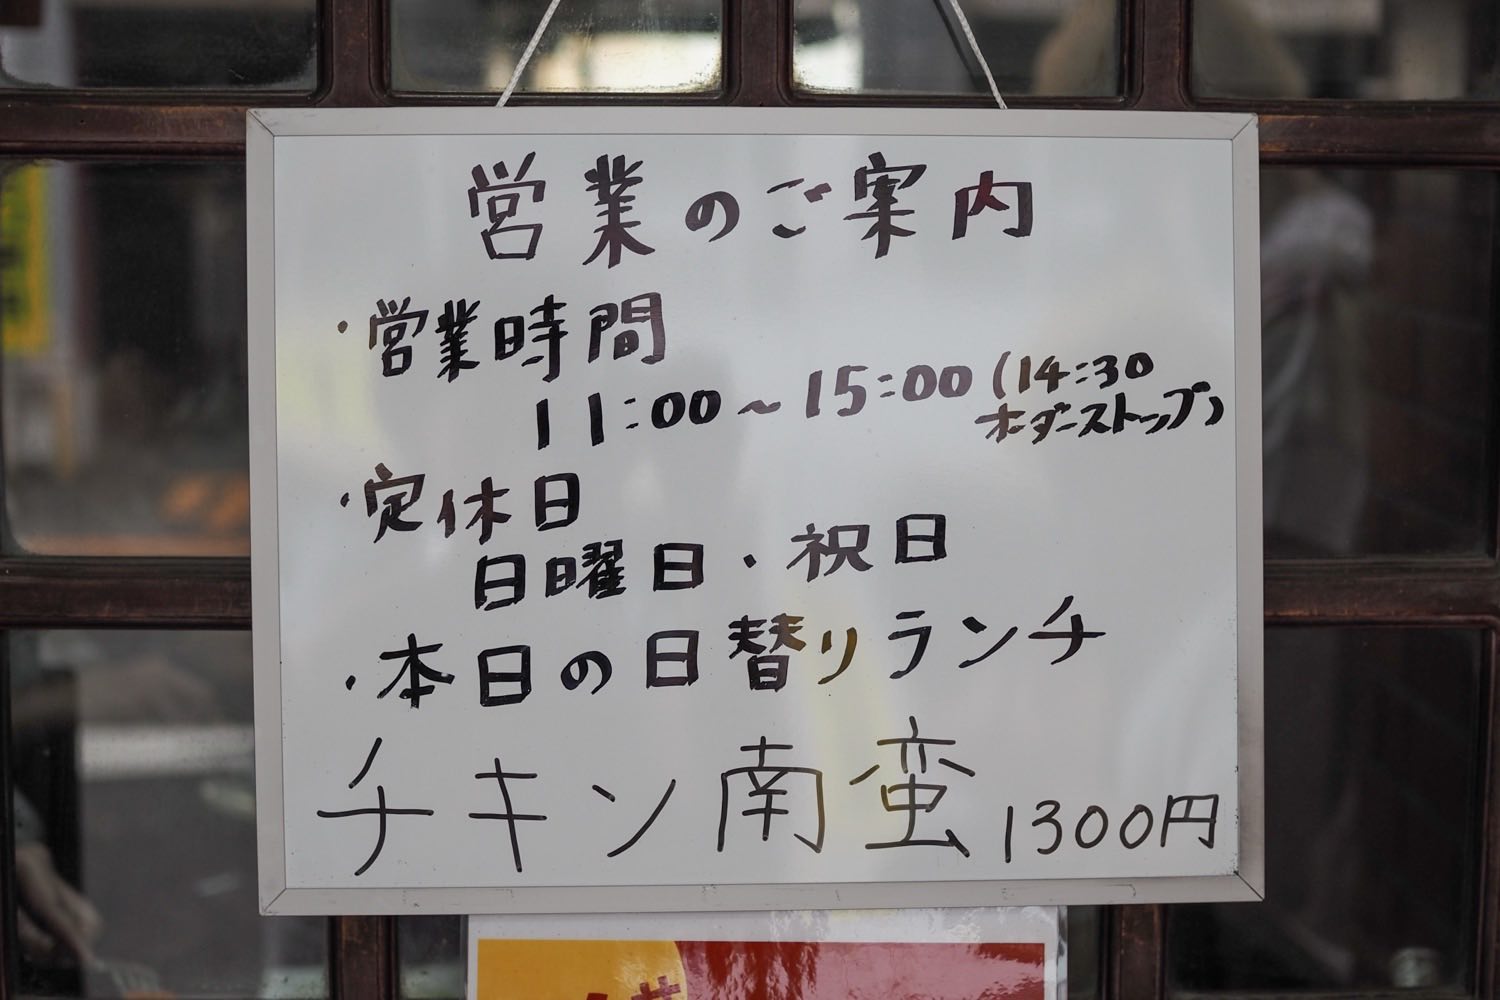 営業のご案内
・営業時間
11:00～15:00(14:30
オーダーストップ)
・定休日
日曜日・祝日
・本日の日替りランチ
チキン南蛮 1300円